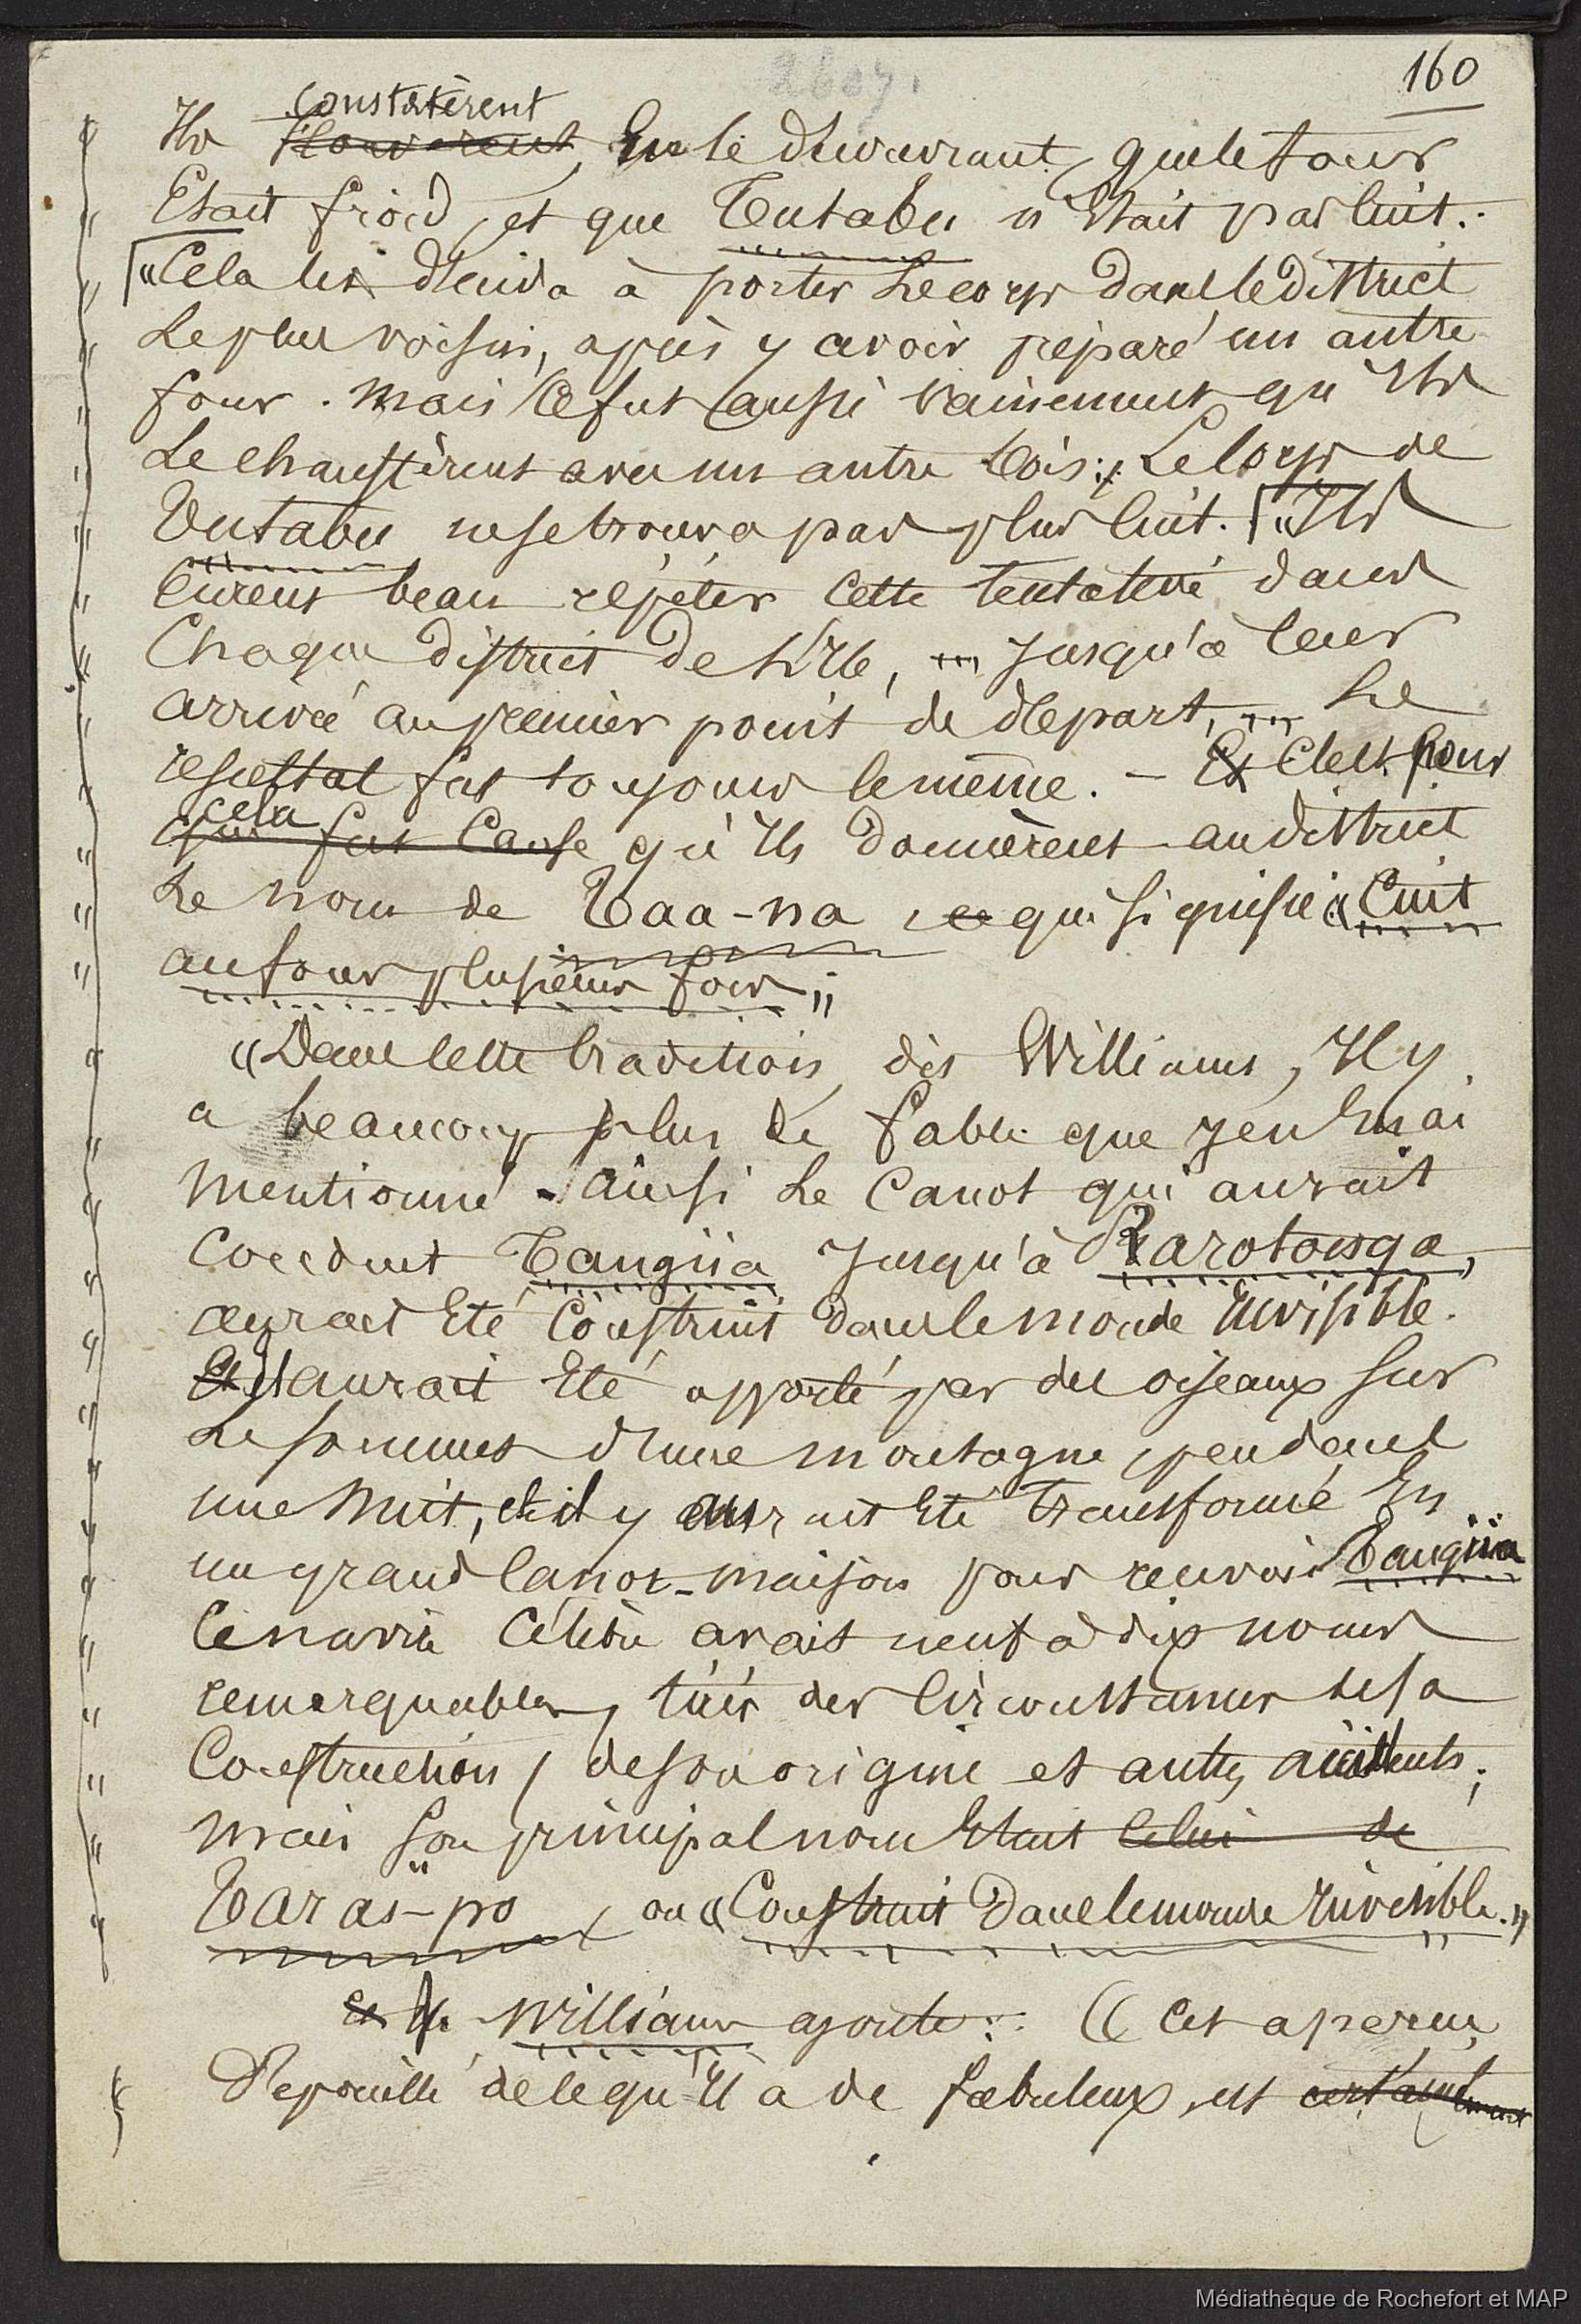 2607.
160
constatèrent
Ils trouvèrent, en le découvrant, que le four
Etait froid, et que Tutabu n'Etait pas cuit.
"Cela les décida à porter le corps dans le district
Le plus voisin, après y avoir préparé un autre
four. Mais ce fut aussi vainement qu'Ils
Le chauffèrent avec un autre bois; Le corps de
Tutabu ne se trouva pas plus cuit. "Ils
Eurent beau répéter cette tentative dans
Chaque district de l'Ile, ... jusqu'à leur
arrivée au premier point de départ, ... Le
resultat fut toujours le même. – Et C'est pour
cela
que fut cause qu'Ils donnèrent au district
Le nom de Taa-na, ce qui signifie "Cuit
au four plusieurs fois."
"Dans cette tradition, dit Williams, Il y
a beaucoup plus de fable que je n'En ai
mentionné. Ainsi Le Canot qui aurait
Conduit Tangiia Jusqu'à Rarotonga,
aurait Eté Construit dans le monde Invisible.
Et Il aurait Eté apporté par des oiseaux sur
Le sommet d'une montagne, pendant
une Nuit, et il y aurait Eté transformé En
un grand Canot-maison pour recevoir Tangiia
Ce navire Célèbre avait neuf à dix noms
remarquables, tirés des Circonstances de sa
Construction, de son origine et autres accidents;
Mais son principal nom Etait celui de
Tarai-po, ou "Construit dans le monde Invisible."
et Mr Williams ajoute: "Cet aperçu,
Dépouillé de ce qu'Il a de fabuleux, est certainement
Médiathèque de Rochefort et MAP